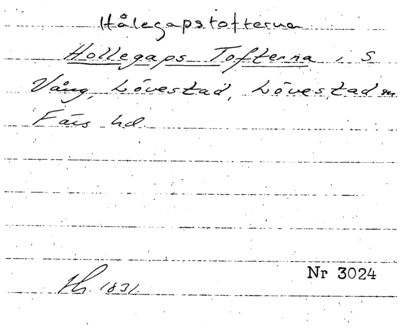 Hålegapstofterna
Hollegaps Tofterna, S
Vång, Lövestad, Lövestad sn
Färs hd.
Nr 3024
1831.